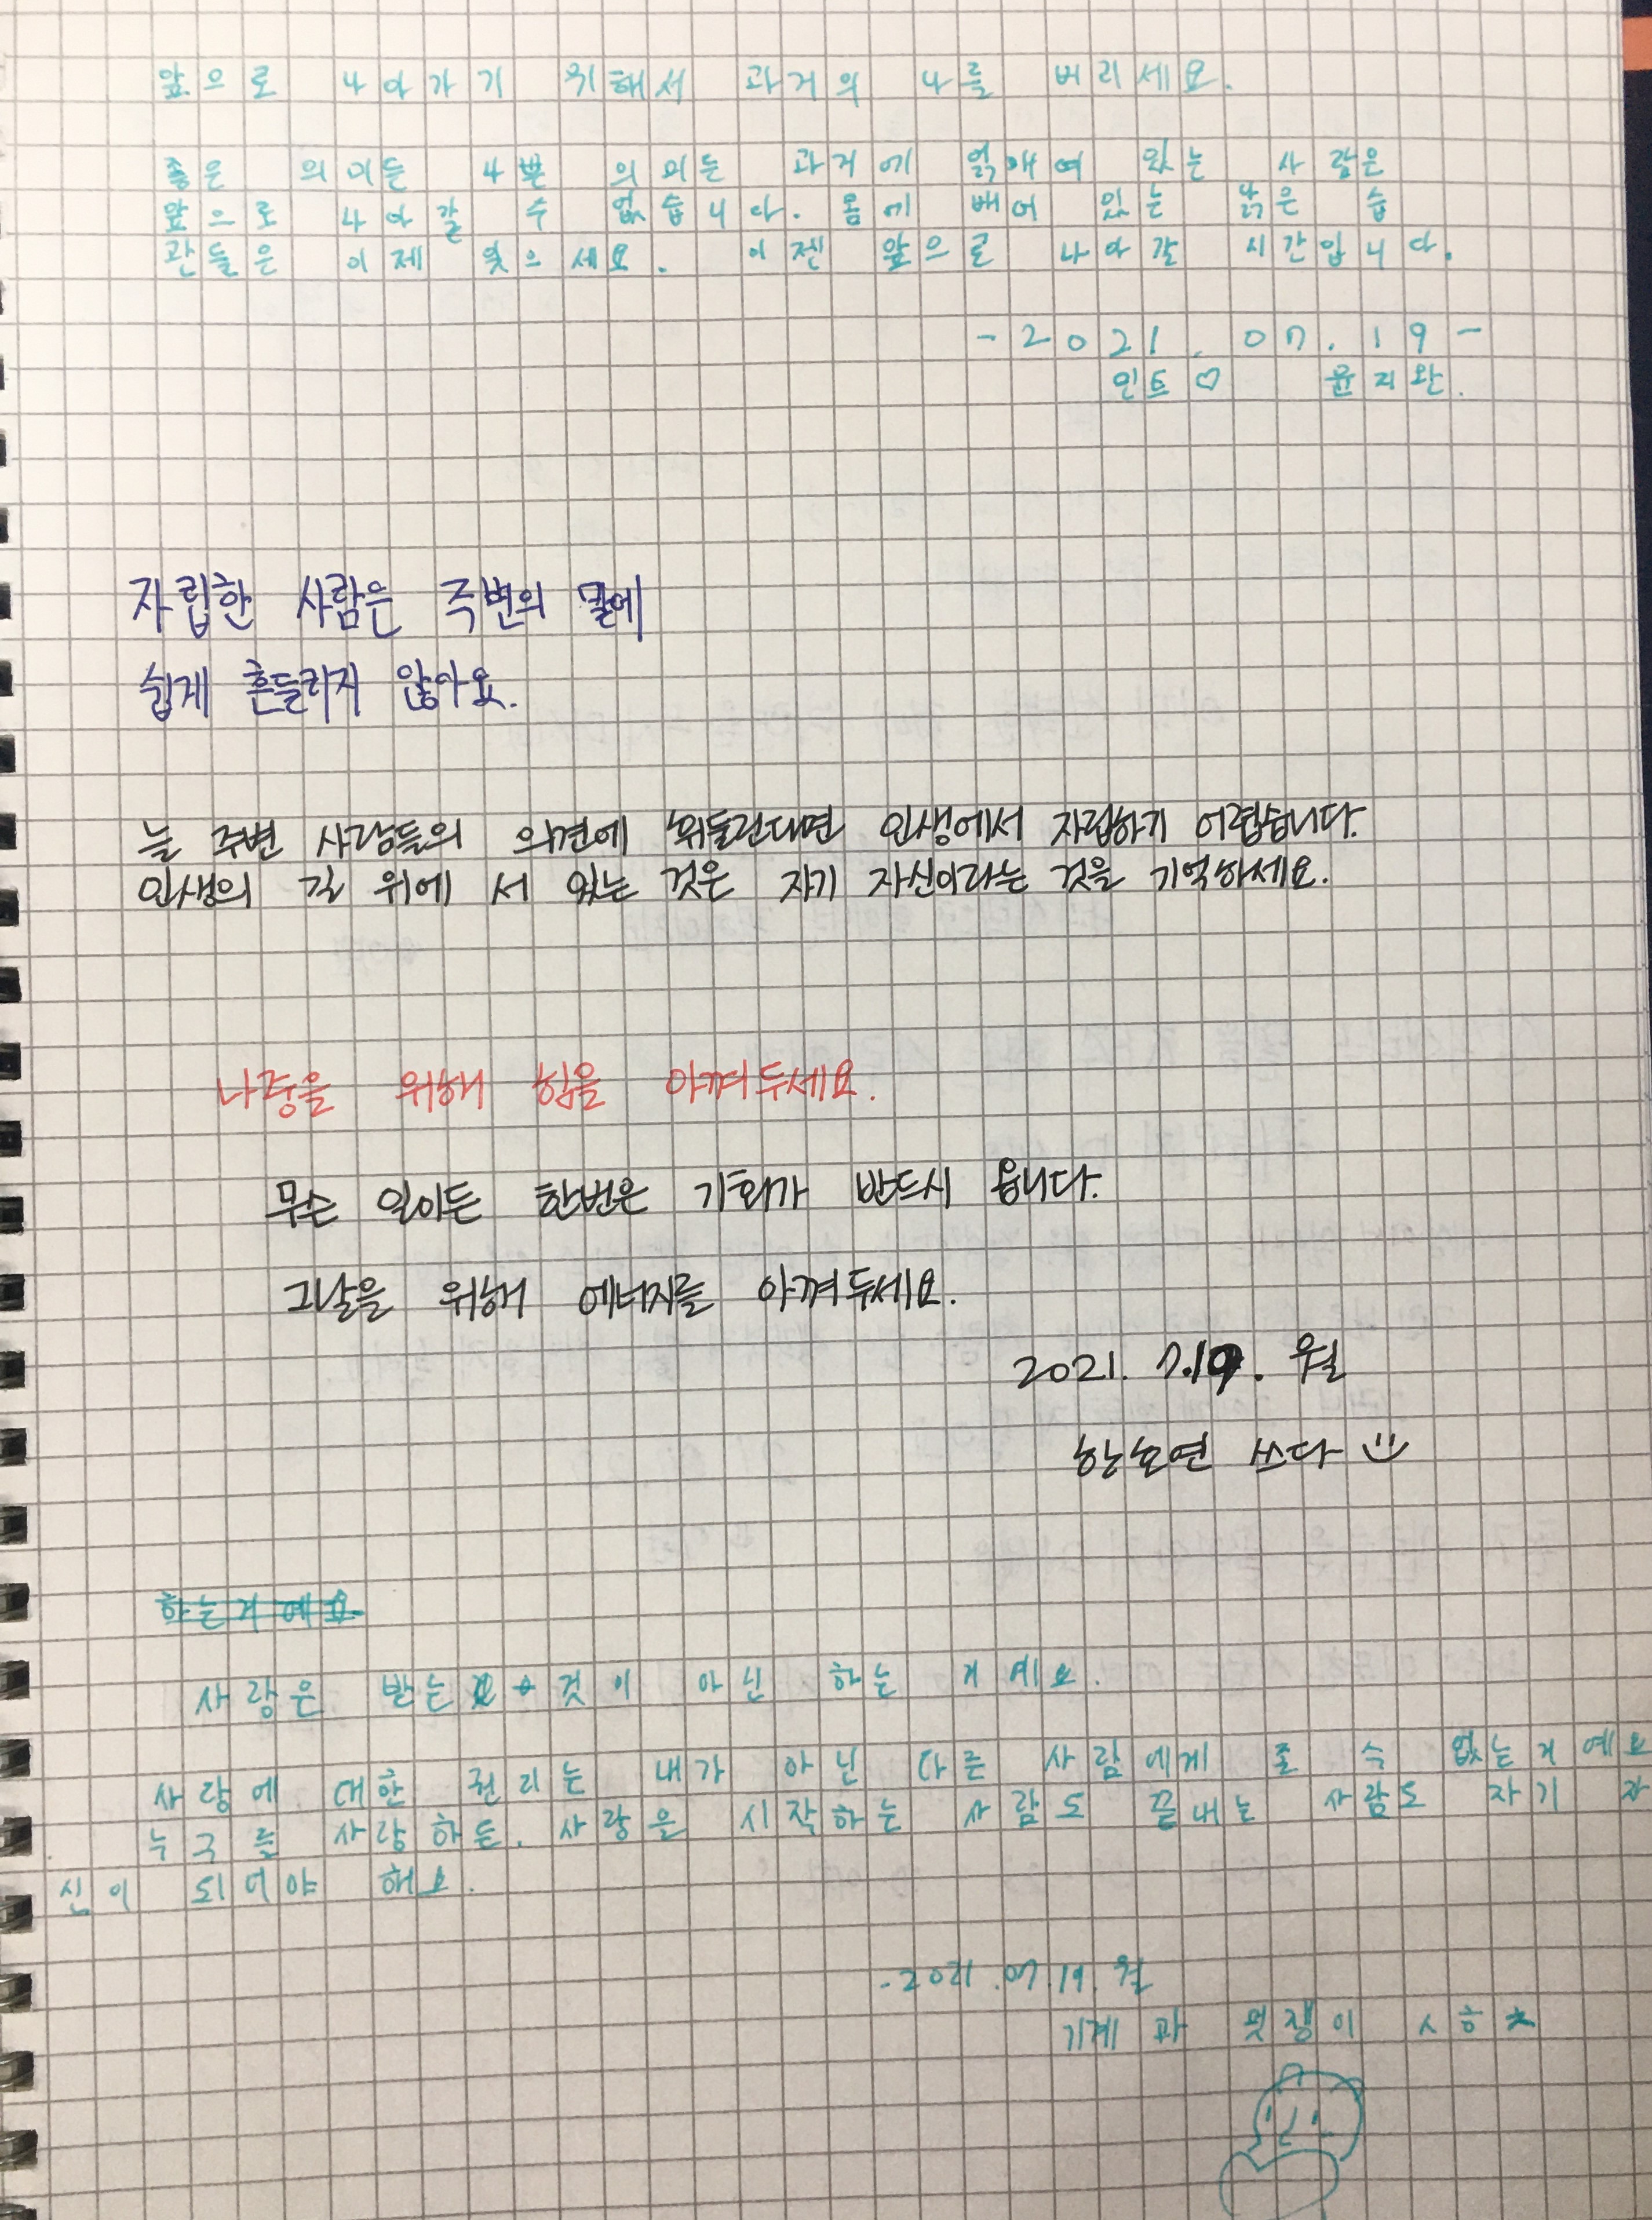 앞으로 나아가기 위해서 과거의 나를 버리세요.
좋은 의미든 나쁜 의미든 과거에 얽매여 있는 사람은
앞으로 나아갈 수 없습니다. 몸에 배어 있는 낡은 습
관들은 이제 잊으세요. 이젠 앞으로 나아갈 시간입니다.
-2021.07.19-
민트♡ 윤지완.
자립한 사람은 주변의 말에
쉽게 흔들리지 않아요.
늘 주변 사람들의 의견에 휘둘린다면 인생에서 자립하기 어렵습니다.
인생의 길 위에 서 있는 것은 자기 자신이라는 것을 기억하세요.
나중을 위해 힘을 아껴두세요.
무슨 일이든 한번은 기회가 반드시 옵니다.
그날을 위해 에너지를 아껴두세요.
2021. 7.19. 월
한호연 쓰다
하는거예요.
사랑은 받는 것이 아닌 하는 거예요.
사랑에 대한 권리는 내가 아닌 다른 사람에게 줄 수 없는거예요
누구를 사랑하든. 사랑을 시작하는 사람도 끝내는 사람도 자기 자
신이 되어야 해요.
-2021.07.19.월
기계과 멋쟁이 ㅅㅎㅊ